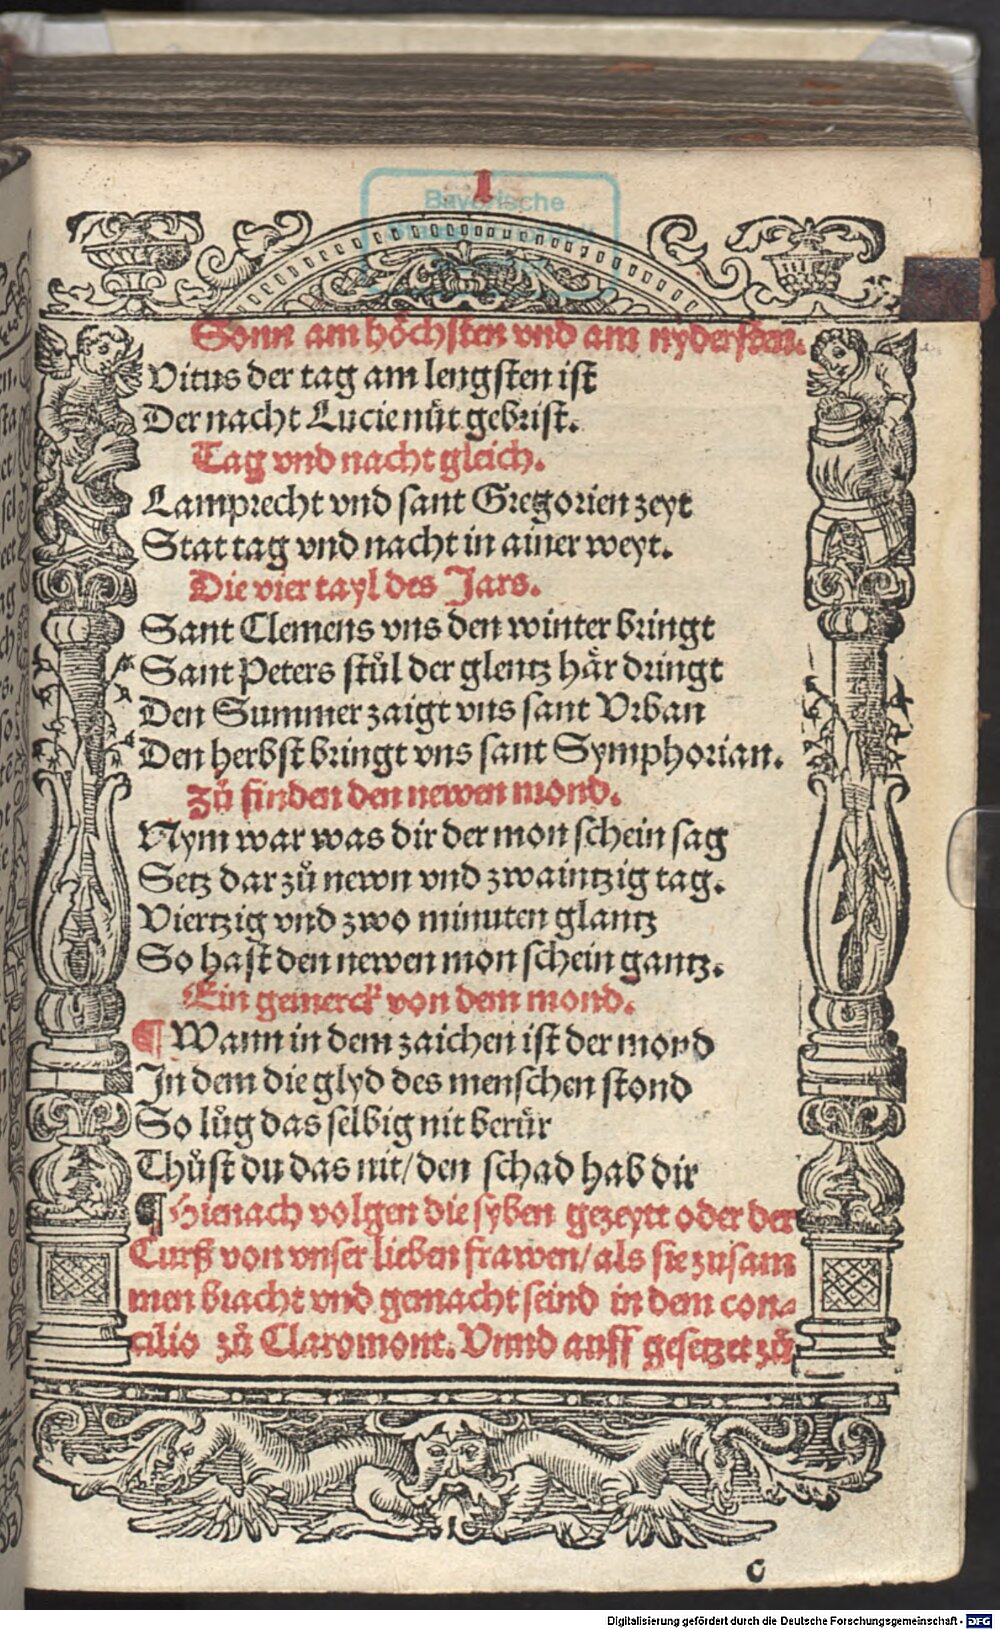 I
Bayerische
Sonn am höchsten vnd am nydersten.
Vitus der tag am lengsten ist
Der nacht Lucie nüt gebrist.
Tag vnd nacht gleich.
Lamprecht vnd sant Gregorien zeyt
Stat tag vnd nacht in ainer weyt.
Die vier tayl des Jars.
Sant Clemens vns den winter bringt
Sant Peters stůl der glentz här dringt
Den Summer zaigt vns sant Vrban
Den herbst bringt vns sant Symphorian.
Zů finden den newen mond.
Nym war was dir der mon schein sag
Setz dar zů newn vnd zwaintzig tag.
Viertzig vnd zwo minuten glantz
So hast den newen mon schein gantz.
Ein gemerck von dem mond.
¶ Wann in dem zaichen ist der mond
In dem die glyd des menschen stond
So lůg das selbig nit berür
Thůst du das nit/ den schad hab dir
¶ Hienach volgen die syben gezeytt oder der
Curß von vnser lieben frawen/ als sie zusam
men bracht vnd gemacht seind in dem con-
cilio zů Claromont. Vnnd auff gesetzet zů
c
Digitalisierung gefördert durch die Deutsche Forschungsgemeinschaft - DFG